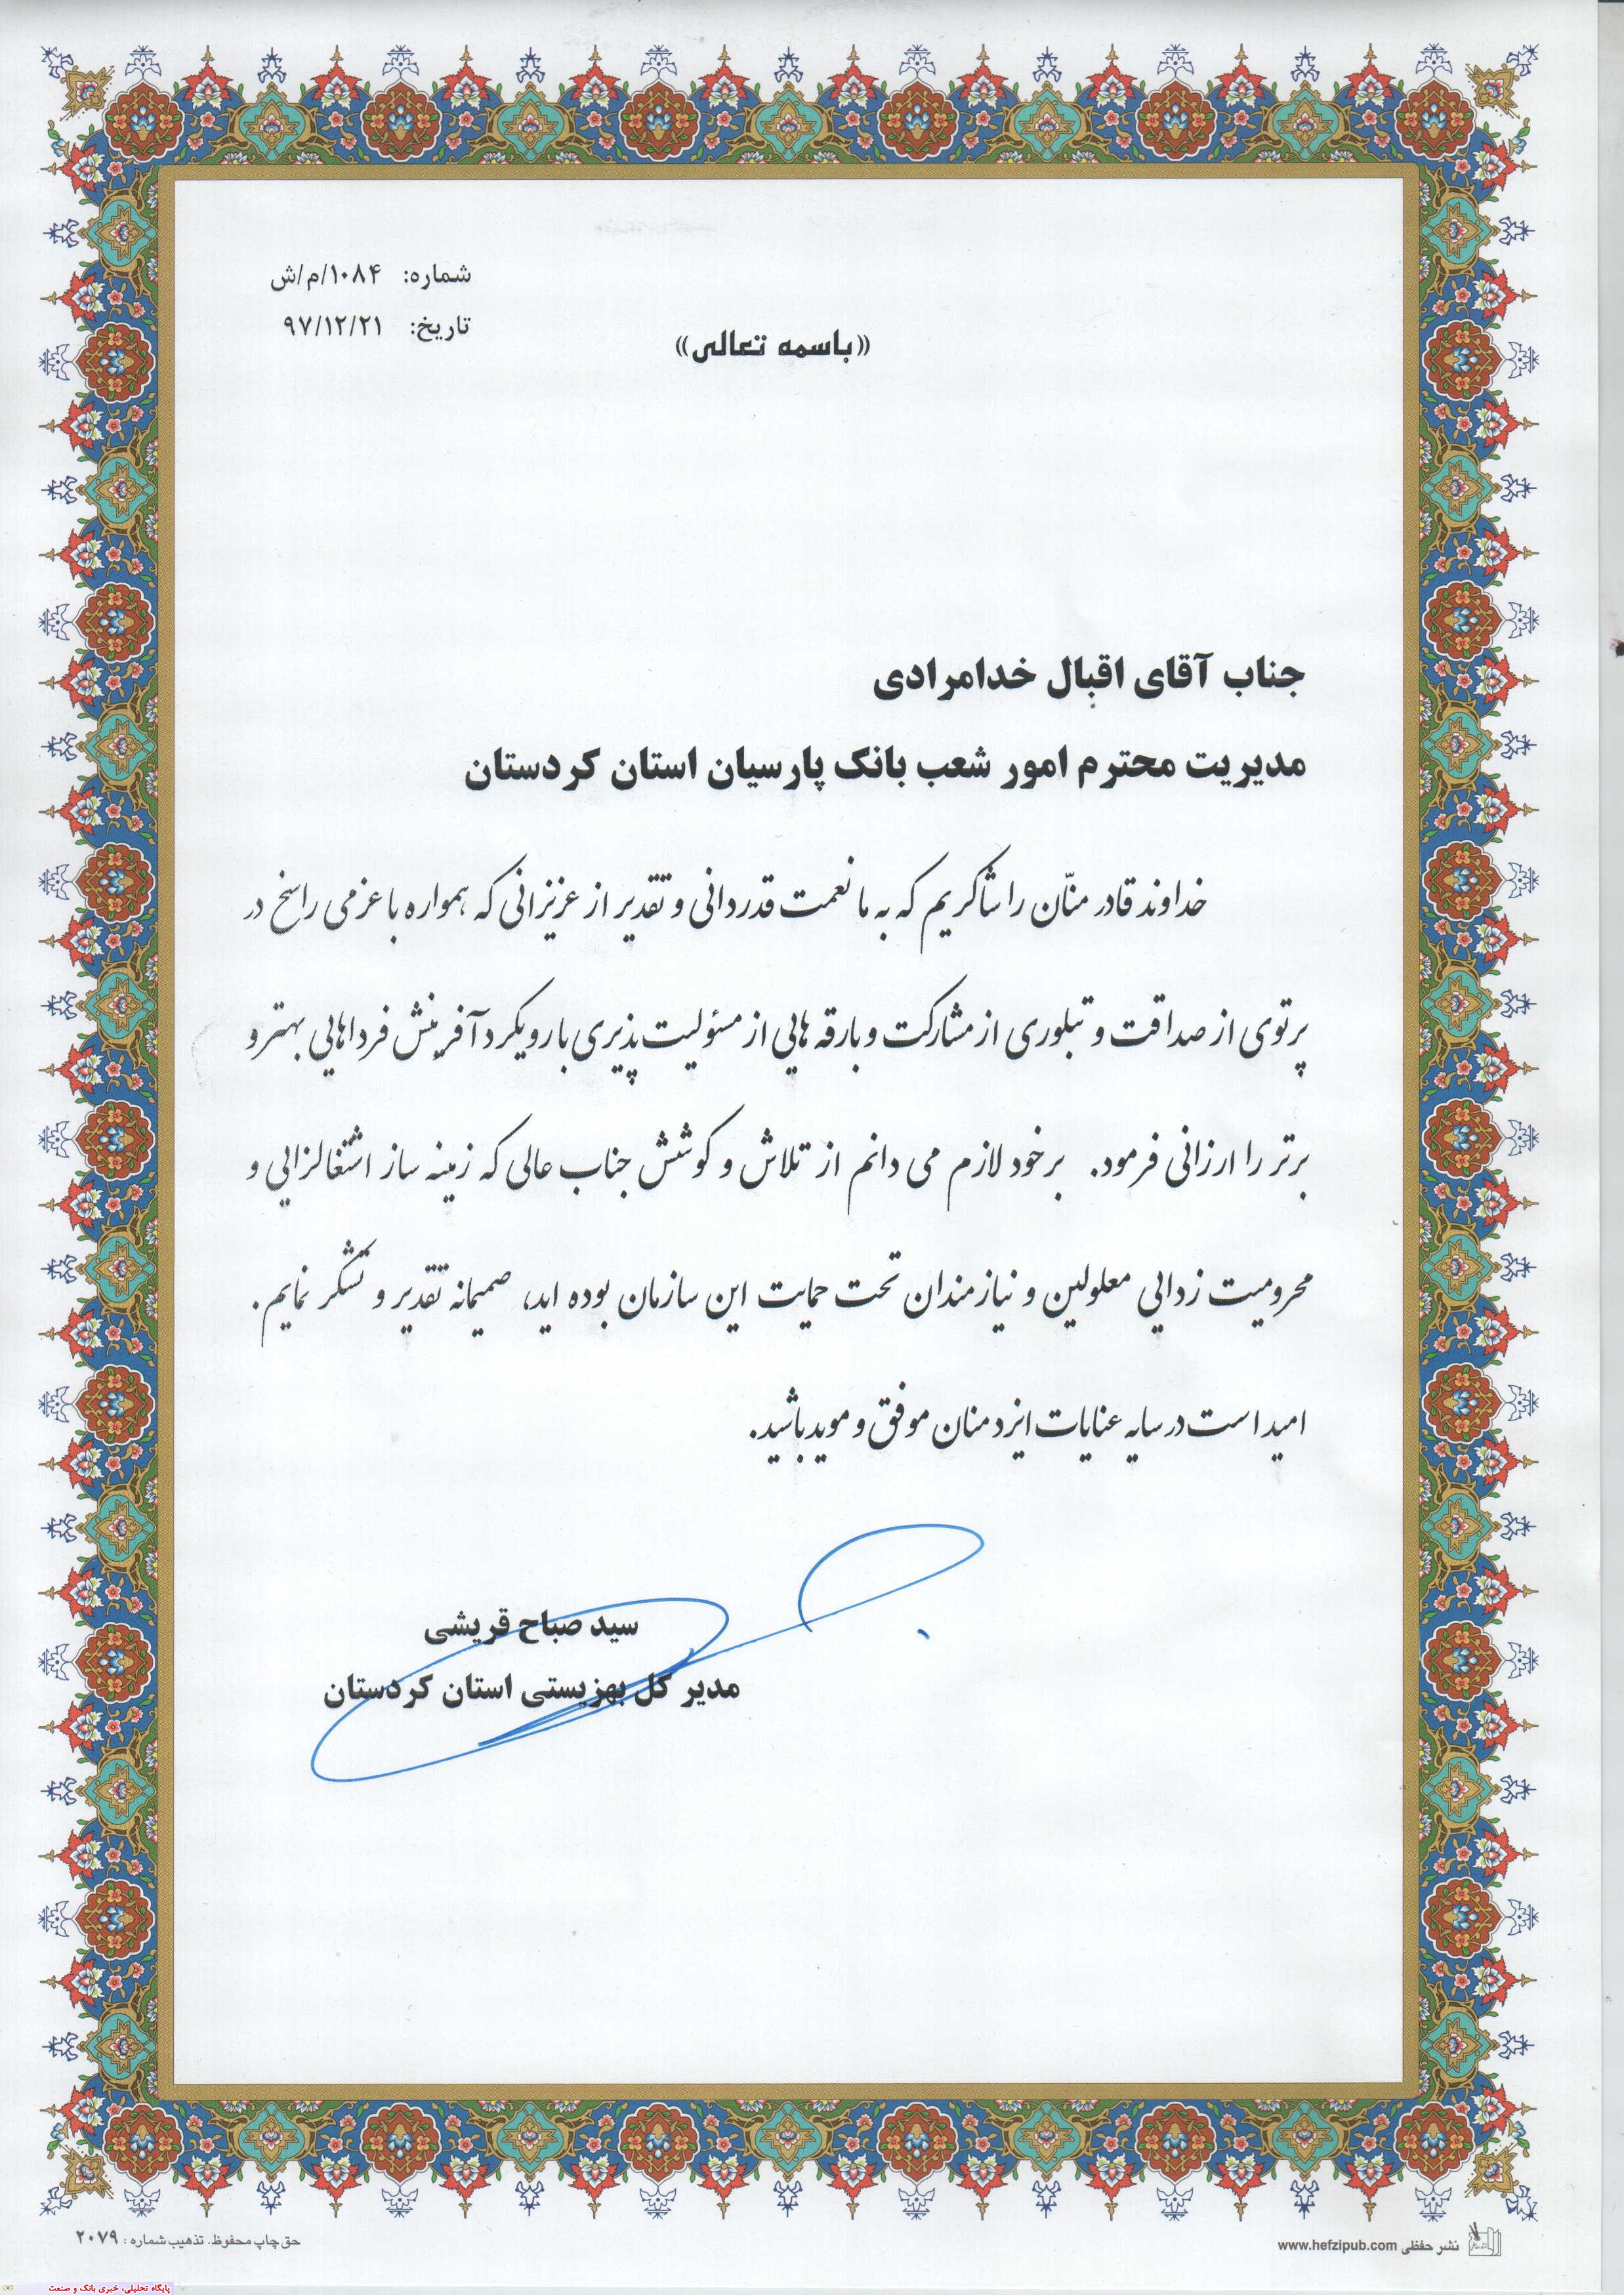 شماره: ۱۰۸۴/م/ش
تاریخ: ۹۷/۱۲/۲۱
«باسمه تعالی»
جناب آقای اقبال خدامرادی
مدیریت محترم امور شعب بانک پارسیان استان کردستان
خداوند قادر منّان را شاکریم که به ما نعمت قدردانی و تقدیر از عزیزانی که همواره با عزمی راسخ در
پرتوی از صداقت و تبلوری از مشارکت و بارقه هایی از مسئولیت پذیری با رویکرد آفرینش فرداهایی بهتر و
برتر را ارزانی فرمود. برخود لازم می دانم از تلاش و کوشش جناب عالی که زمینه ساز اشتغالزایی و
محرومیت زدایی معلولین و نیازمندان تحت حمایت این سازمان بوده اید، صمیمانه تقدیر و تشکر نمایم.
امید است در سایه عنایات ایزد منان موفق و موید باشید.
سید صباح قریشی
مدیر کل بهزیستی استان کردستان
نشر حفظی www.hefzipub.com
حق چاپ محفوظ. تذهیب شماره: ۲۰۷۹
پایگاه تحلیلی، خبری بانک و صنعت